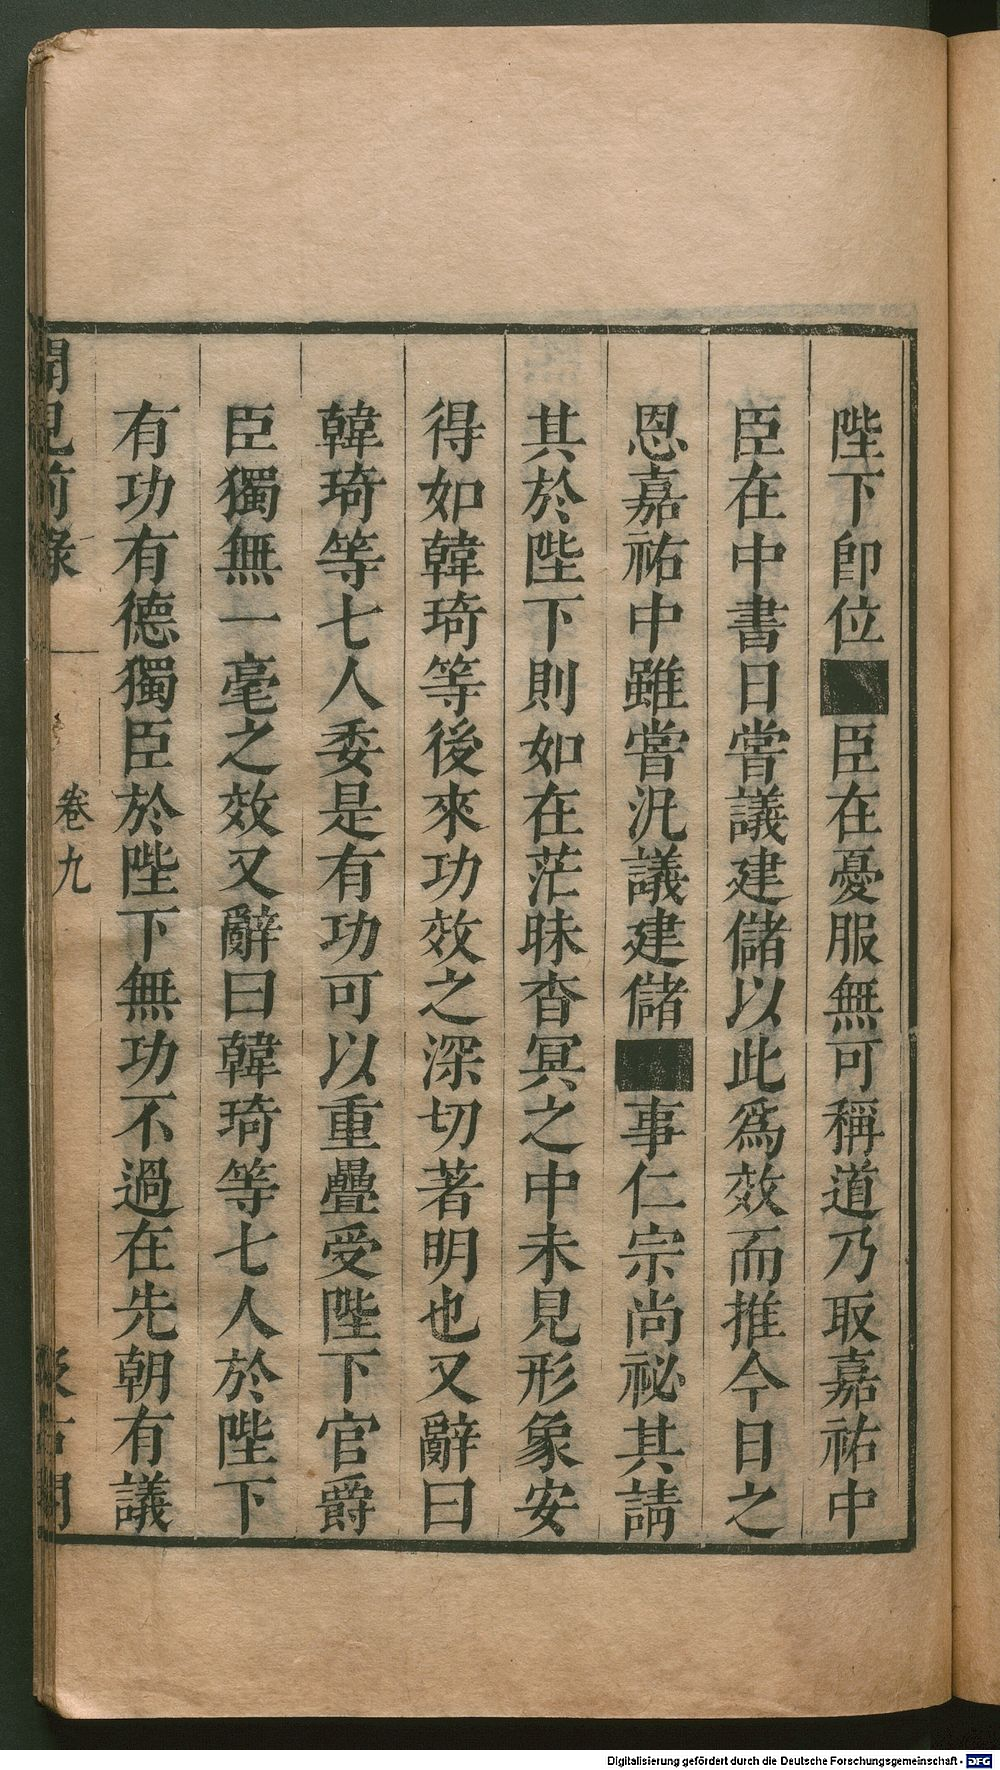 陛下卽位■臣在憂服無可稱道乃取嘉祐中
臣在中書日嘗議建儲以此爲效而推今日之
恩嘉祐中雖嘗汎議建儲■事仁宗尚祕其請
其於陛下則如在茫昧杳冥之中未見形象安
得如韓琦等後來功效之深切著明也又辭曰
韓琦等七人委是有功可以重疊受陛下官爵
臣獨無一毫之效又辭曰韓琦等七人於陛下
有功有德獨臣於陛下無功不過在先朝有議
聞見前錄 卷九
Digitalisierung gefördert durch die Deutsche Forschungsgemeinschaft - DFG